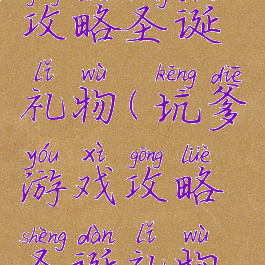 攻略圣诞
lǐ wù kēng diē
礼物(坑爹
yóu xì gōng lüè
游戏攻略
shèng dàn lǐ wù
圣诞礼物